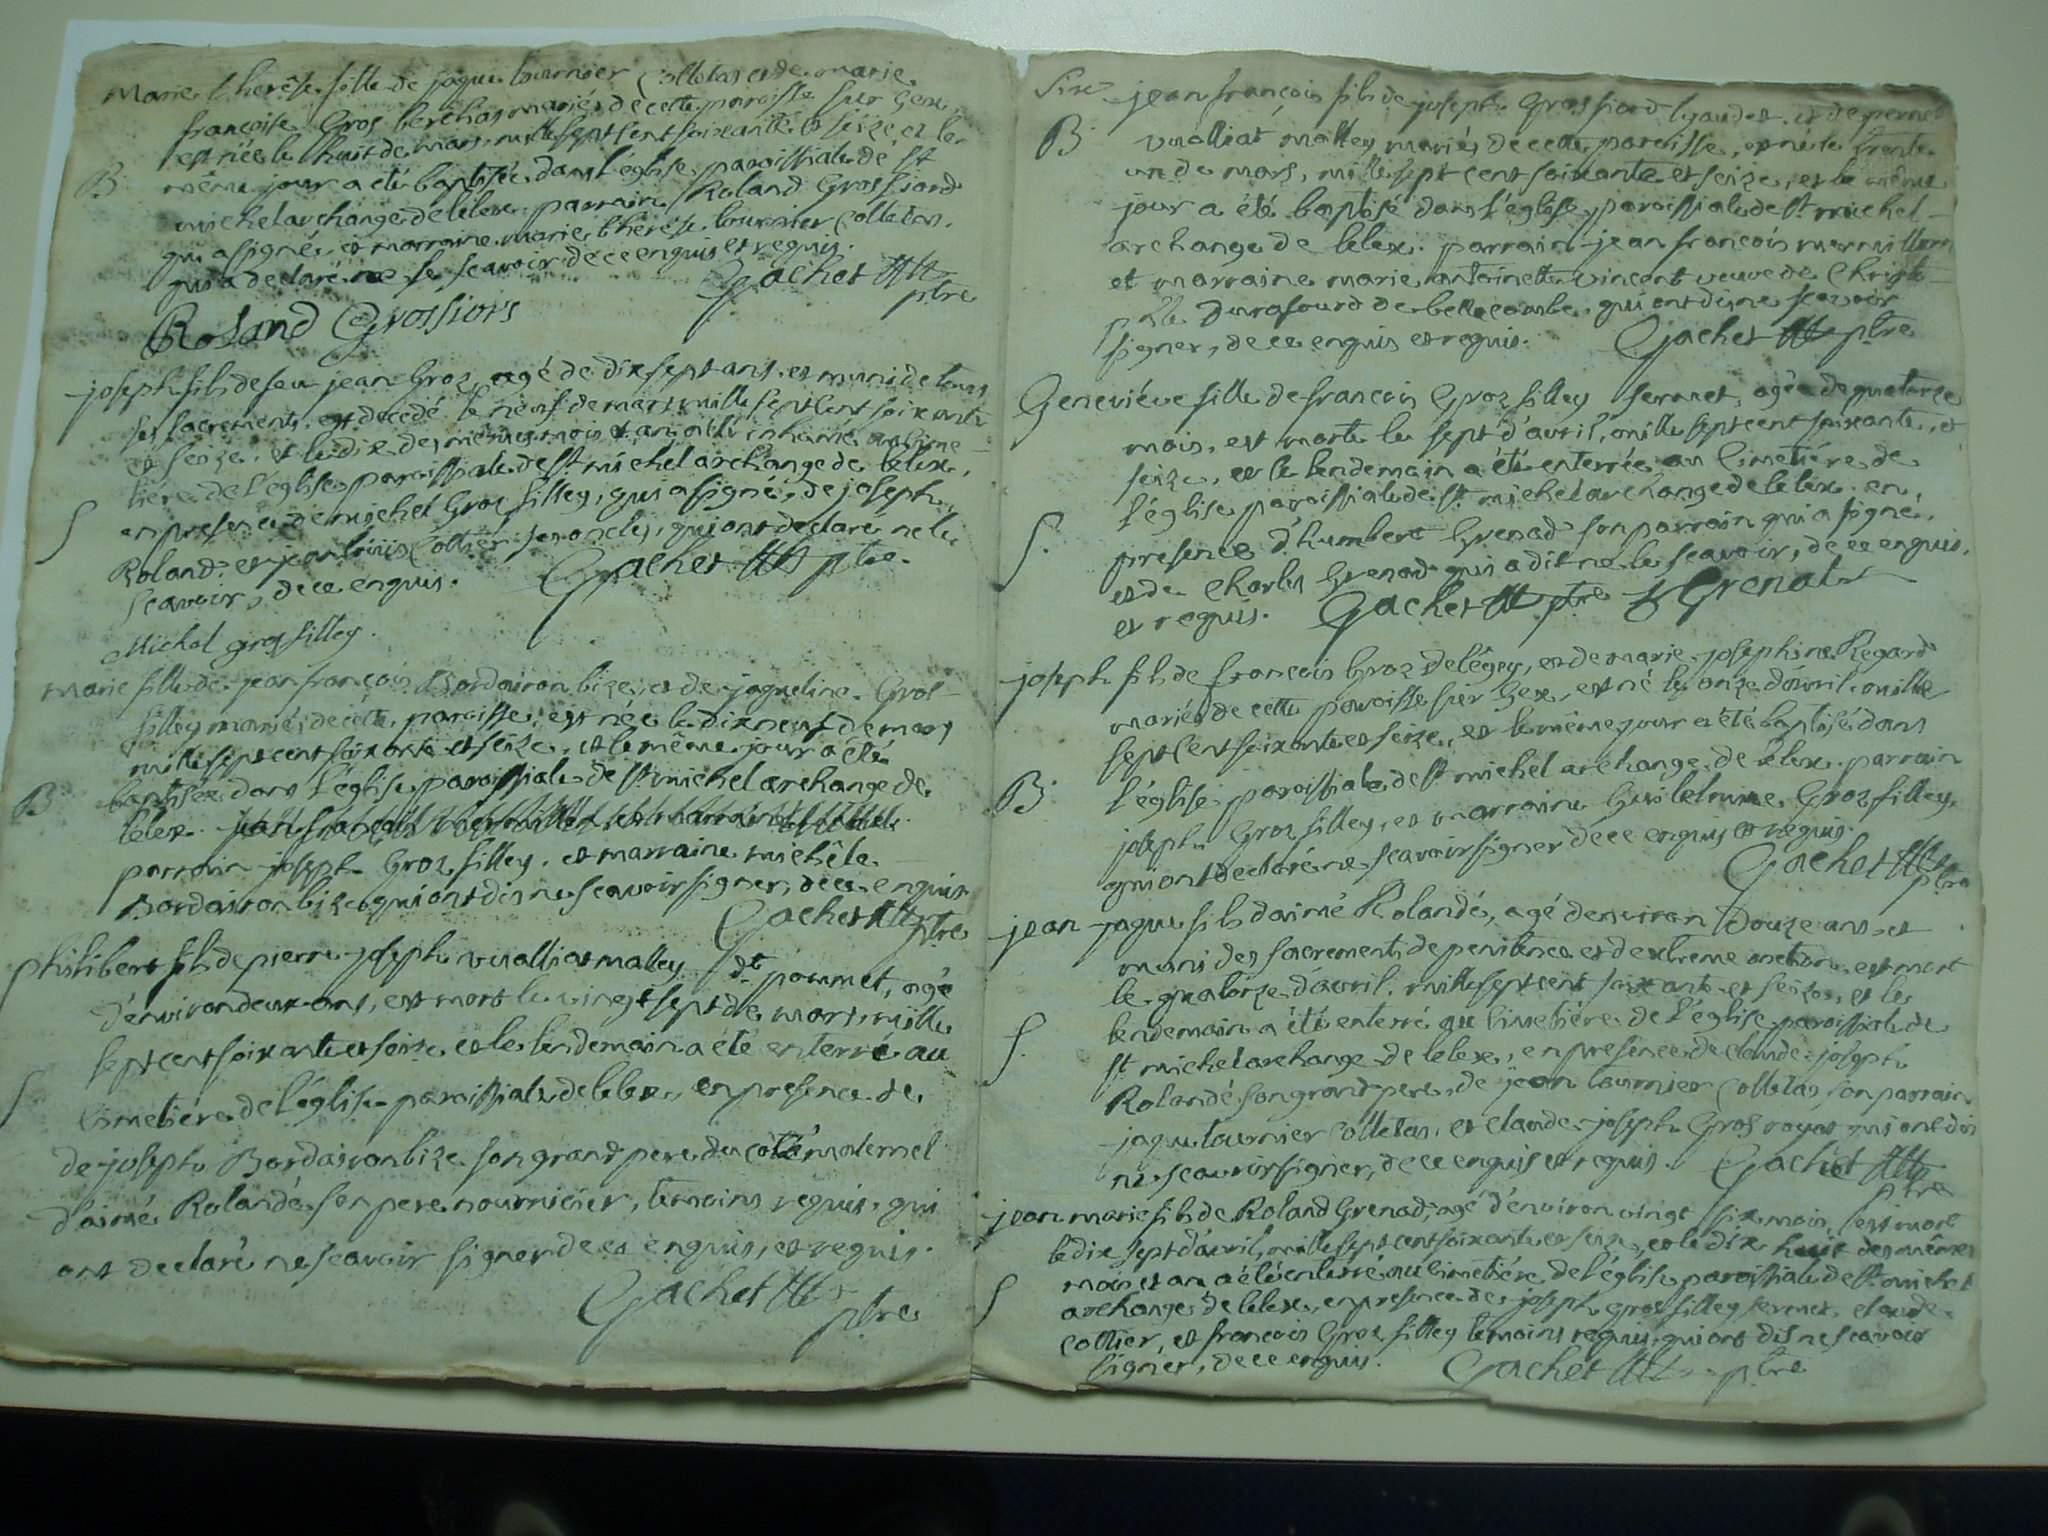 Marie thérèse fille de jaque tournier Colletas et de marie
françoise Gros berchas mariés de cette paroisse sur Gex,
est née le huit de mars, mille sept cent soixante et seize et le
B même jour a été baptisée dans l'église paroissiale de st
michel archange de lélex. parrain Roland Grosfiord
qui a signé, et marraine marie thérèse tournier Colletas.
qui a declaré ne le scavoir de ce enquis et requis.
Gachet ptre
Roland Grossiors
joseph fils de feu jean Groz, agé de dix sept ans, et muni de tous
ses sacrements, est decedé le neuf de mars mille sept cent soixante
et seize, et le dix des mêmes mois et an a été inhumé au cime-
tière de l'église paroissiale de st michel archange de lélex,
S en presence de michel Groz filley, qui a signé, de joseph,
Roland et jean louis Cottier ses oncles, qui ont declaré ne le
scavoir, de ce enquis. Gachet ptre.
Michel gros filley.
Marie fille de jean françois Bordairon bize, et de jaqueline Gros-
filley mariés de cette paroisse, est née le dix neuf de mars
mille sept cent soixante et seize, et le même jour a été
B baptisée dans l'église paroissiale de st michel archange de
lélex.
parrain joseph Groz filley, et marraine michèle
Bordairon bize qui ont dis ne scavoir signer, de ce enquis
Gachet ptre
philibert fils de pierre joseph vualliat malley dt pommet, agé
d'environ deux ans, est mort le vingt sept de mars, mille
sept cent soixante et seize et le lendemain a été enterré au
S cimetière de l'église paroissiale de lélex, en presence de
de joseph Bordairon bize son grand pere du coté maternel
d'aimé Rolandé son pere nourricier, temoins requis, qui
ont declaré ne scavoir signer de ce enquis, et requis.
Gachet
ptre
jean françois fils de joseph Grosfiord et de pernet
B vualliat malley mariés de cette paroisse, est né le trente
un de mars, mille sept cent soixante et seize, et le même
jour a été baptisé dans l'église paroissiale de st michel-
archange de lélex. parrain jean françois mermillon
et marraine marie antoinette vincent veuve de Christo-
phle durafourd de bellecombe. qui ont dis ne scavoir
signer, de ce enquis et requis. Gachet ptre
Geneviéve fille de françois Groz filley fermet, agée de quatorze
mois, est morte le sept d'avril, mille sept cent soixante, et
seize, et le lendemain a été enterrée au Cimetière de
l'église paroissiale de st michel archange de lélex. en,
S. presence d'humbert Grenad son parrain qui a signé,
et de Charles Grenad qui a dit ne le scavoir, de ce enquis,
et requis. Gachet ptre Grenat
joseph fils de françois Groz delégey, et de marie josephine Regard
mariés de cette paroisse sur Gex, est né le onze d'avril mille
sept cent soixante et seize, et le même jour a été baptisé dans
B l'église paroissiale de st michel archange de lélex. parrain
joseph Groz filley, et marraine Guilelmine Groz filley,
qui ont declaré ne scavoir signer de ce enquis et requis.
Gachet
ptre
jean jaque fils d'aimé Rolandé, agé d'environ Douze ans, et
muni des sacrements de penitence et d'extreme onction est mort
le quatorze d'avril, mille sept cent soixante et seize, et le
S. lendemain a été enterré au cimetière de l'église paroissiale de
st michel archange de lélex, en presence de claude joseph
Rolandé son grand pere, de jean tournier Colletas, son parrain
jaque tournier Colletas, et claude joseph Gros royat qui ont dis
ne scavoir signer, de ce enquis et requis. Gachet
ptre
jean marie fils de Roland Grenad, agé d'environ vingt six mois, est mort
le dix sept d'avril, mille sept cent soixante et seize, et le dix huit des mêmes
S mois et an a été enterré au cimetière de l'église paroissiale de st michel
archange de lélex, en presence de joseph Gros filley fermet, claude
Cottier, et françois Groz filley temoins requis, qui ont dis ne scavoir
signer, de ce enquis. Gachet ptre